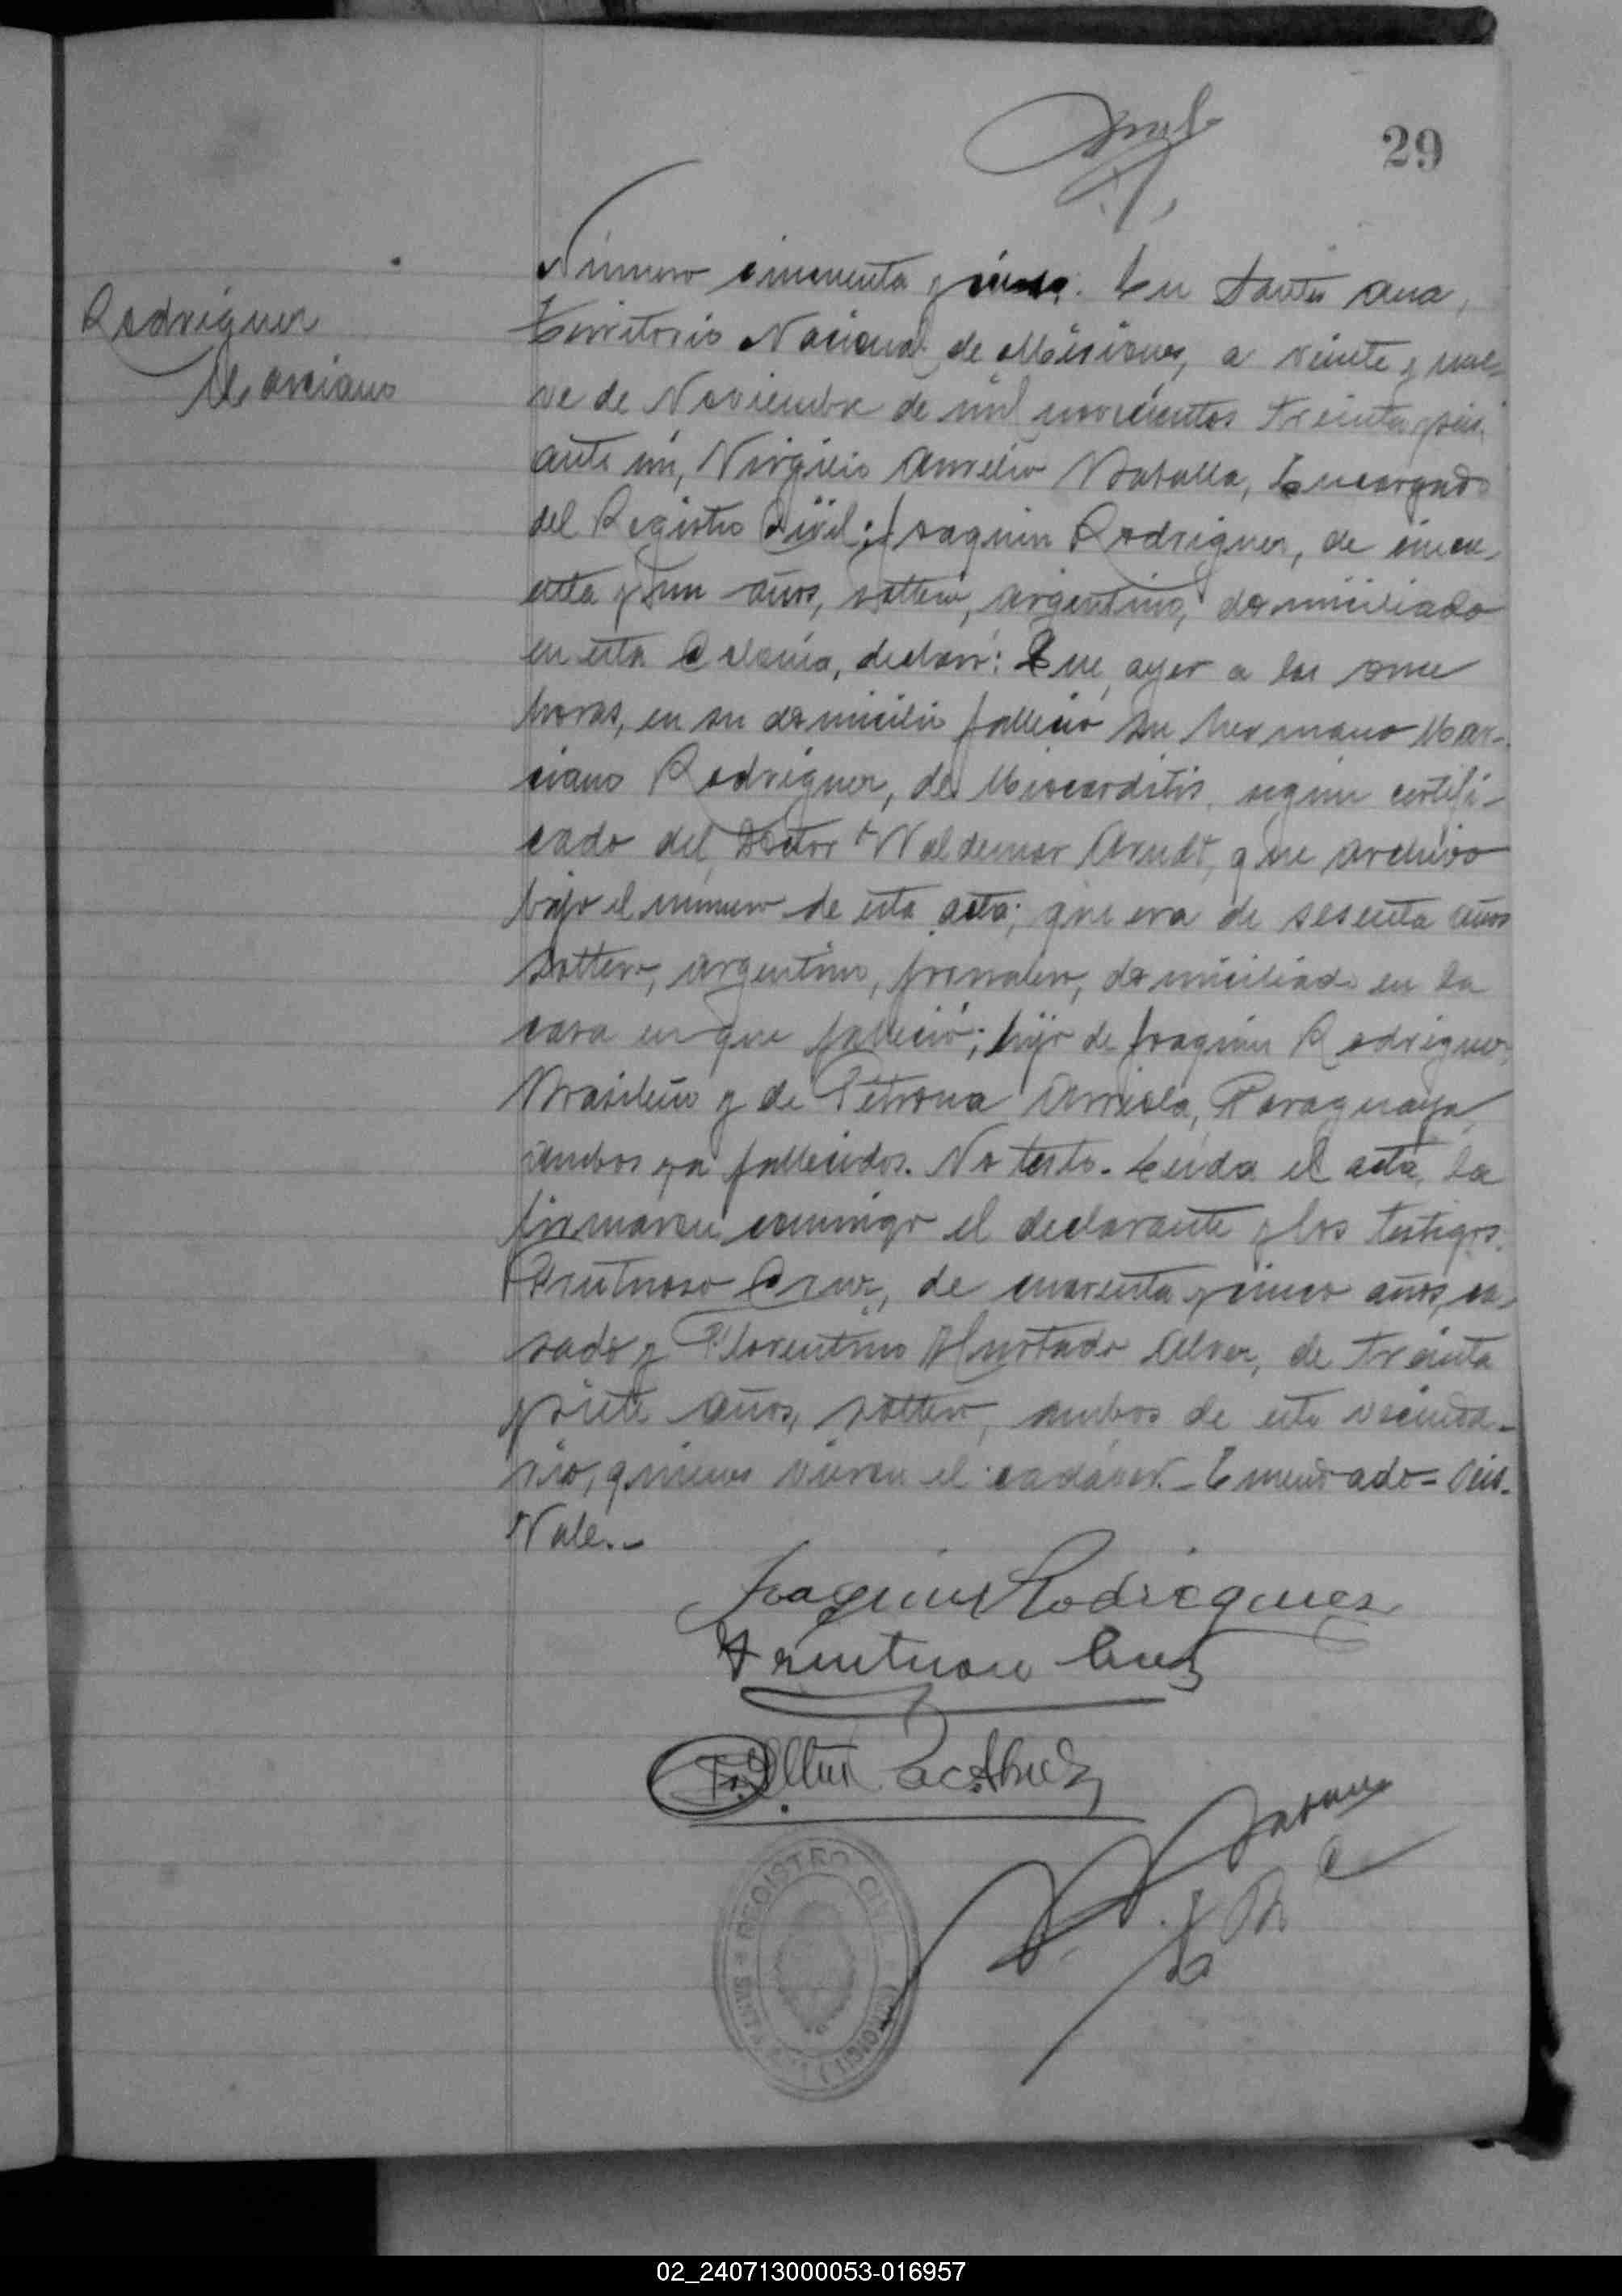 29
Rodriguez
Marciano
Número cincuenta y cinco. En Santa Ana,
Territorio Nacional de Misiones, a veinte y nue-
ve de Noviembre de mil novecientos treinta y seis
ante mi, Virgilio Aurelio Zaballa, Encargado
del Registro Civil; Joaquin Rodriguez, de cincu-
enta y un años, soltero, argentino, domiciliado
en esta Colonia, declaró: Que ayer a las once
horas, en su domicilio falleció su hermano Mar-
ciano Rodriguez, de Miocarditis, según certifi-
cado del Doctor Waldemar Arndt, que archivo
bajo el número de esta acta; que era de sesenta años
soltero, argentino, jornalero, domiciliado en la
casa en que falleció; hijo de Joaquin Rodriguez,
Brasileño y de Petrona Arriola, Paraguaya,
ambos ya fallecidos. No testó. Leida el acta, la
firmaron conmigo el declarante y los testigos.
Frutuoso Cruz, de cuarenta y cinco años, ca-
sado y Florentino Hurtado Alvez, de treinta
y siete años, soltero, ambos de este vecinda-
rio, quienes vieron el cadáver.- Enmendado= seis.
Vale.-
Joaquin Rodriguez
Frutuoso Cruz
REGISTRO CIVIL
SANTA ANA (MISIONES)
02_240713000053-016957